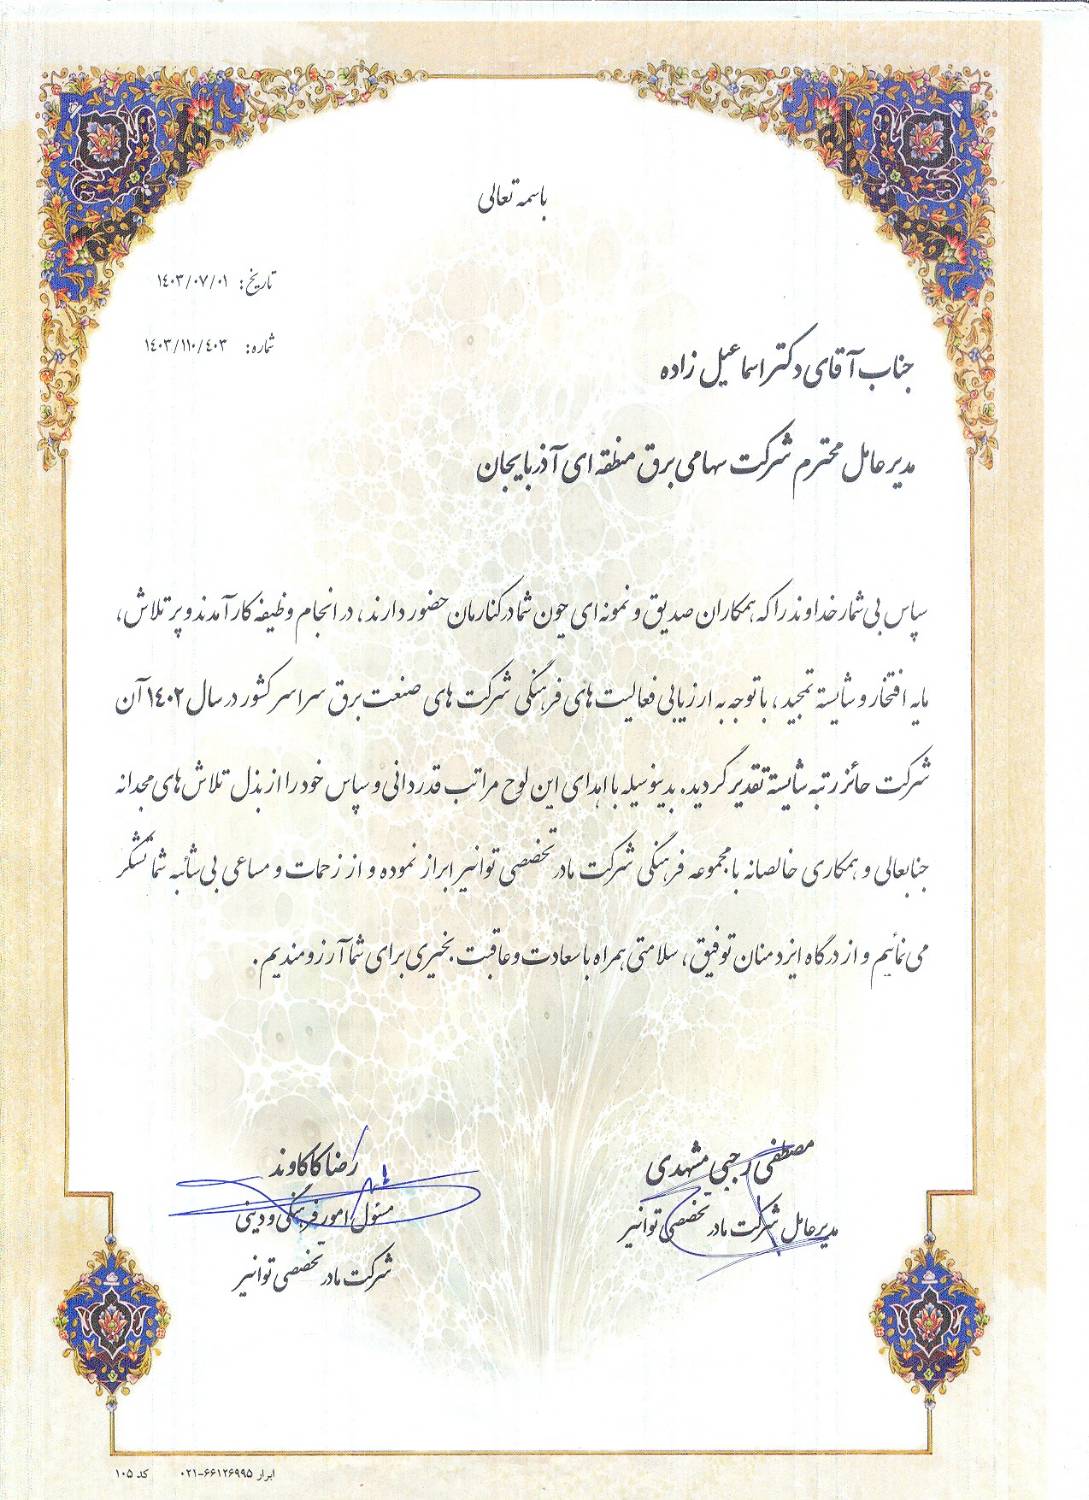 باسمه تعالی
تاریخ: ۱۴۰۳/۰۷/۰۱
شماره: ۱۴۰۳/۱۱۰/۴۰۳
جناب آقای دکتر اسماعیل زاده
مدیرعامل محترم شرکت سهامی برق منطقه ای آذربایجان
سپاس بی شمار خداوند را که همکاران صدیق و نمونه ای چون شما در کنارمان حضور دارند، در انجام وظیفه کارآمدند و پرتلاش،
مایه افتخار و شایسته تمجید، با توجه به ارزیابی فعالیت های فرهنگی شرکت های صنعت برق سراسر کشور در سال ۱۴۰۲ آن
شرکت حائز رتبه شایسته تقدیر گردید. بدینوسیله با اهدای این لوح مراتب قدردانی و سپاس خود را از بذل تلاش های مجدانه
جنابعالی و همکاری خالصانه با مجموعه فرهنگی شرکت مادر تخصصی توانیر ابراز نموده و از زحمات و مساعی بی شائبه شما تشکر
می نمائیم و از درگاه ایزد منان توفیق، سلامتی همراه با سعادت و عاقبت بخیری برای شما آرزومندیم.
مصطفی رجبی مشهدی
مدیرعامل شرکت مادر تخصصی توانیر
رضا کاکاوند
مسئول امور فرهنگی و دینی
شرکت مادر تخصصی توانیر
ابرار ۶۶۱۲۶۹۹۵-۰۲۱ کد ۱۰۵